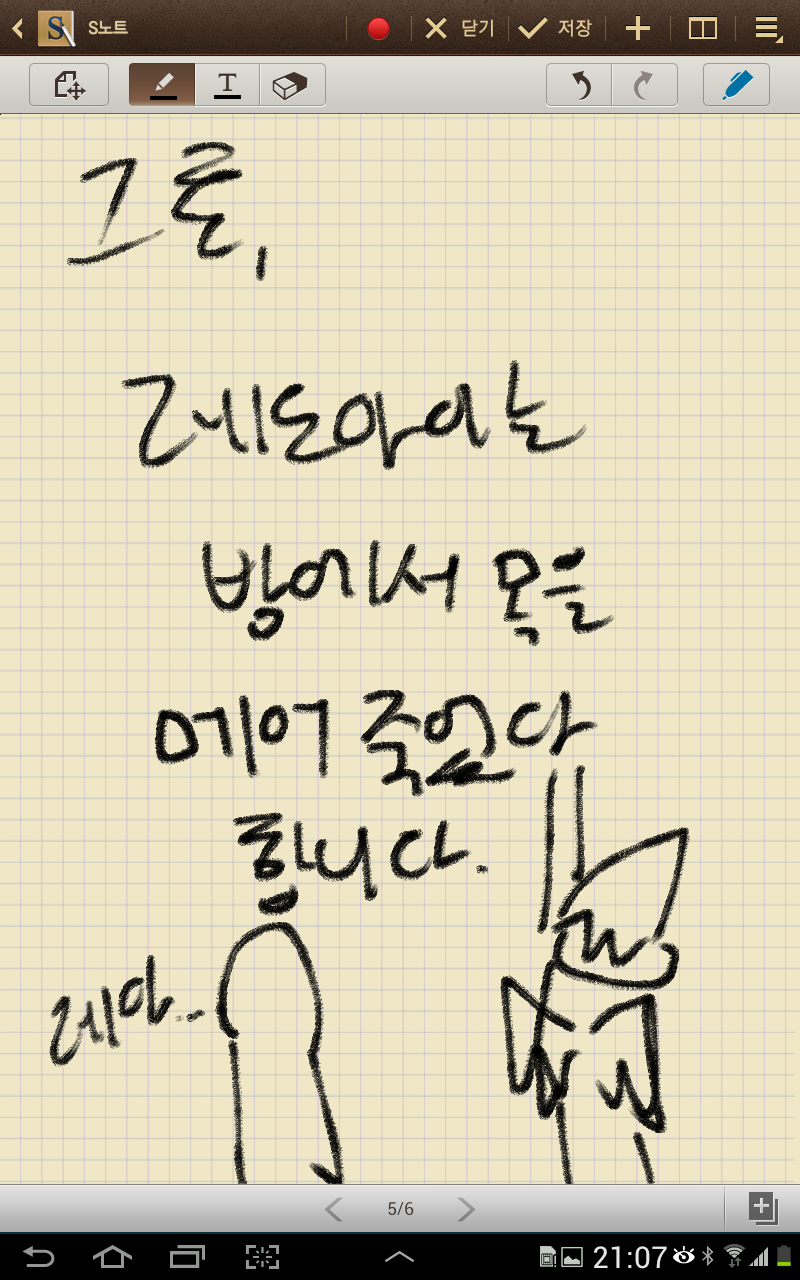 S노트
닫기
저장
T
그름,
레도아이는
방에서 목을
메어 죽었다
합니다.
레아..
5/6
21:07